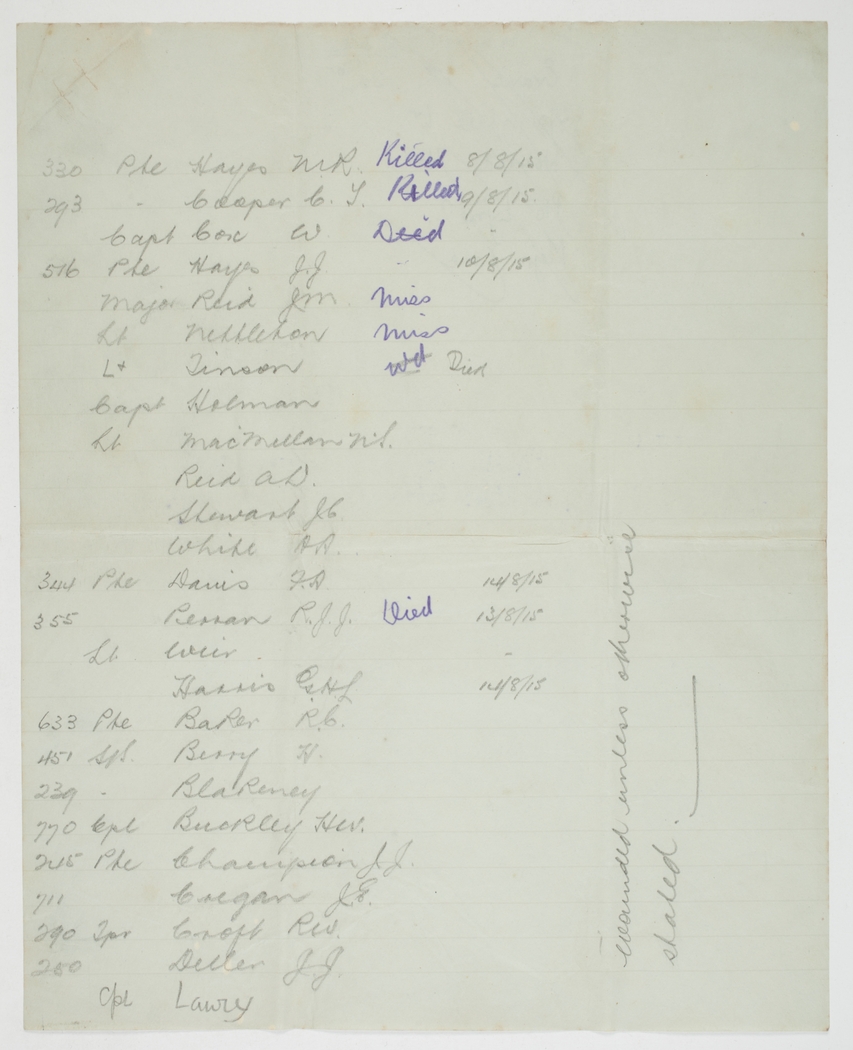 330 Pte Hayes M.R. Killed 8/8/15
293 - Cooper C. T. Killed 9/8/15.
Capt Cox W Died -
516 Pte Hayes J.J - 10/8/15
Major Reid J.M. Miss
Lt Nettleton Miss
Lt Tinson Wd Died
Capt Holman
Lt MacMellan N.S.
Reid A D.
Stewart J C
White A.A.
344 Pte Davis F.A. 14/8/15
355 R.J.J. Died 13/8/15
Lt Weir. -
Harris 14/8/15
633 Pte Baker R.C.
451 Berry H.
239 - Blakeney
770 Cpl Buckley H.W.
Pte Champion J.J.
711 Cregan J.F.
290 Tpr Croft R.W.
250 Deller J J
Cpl Lawry
wounded unless otherwise
stated.